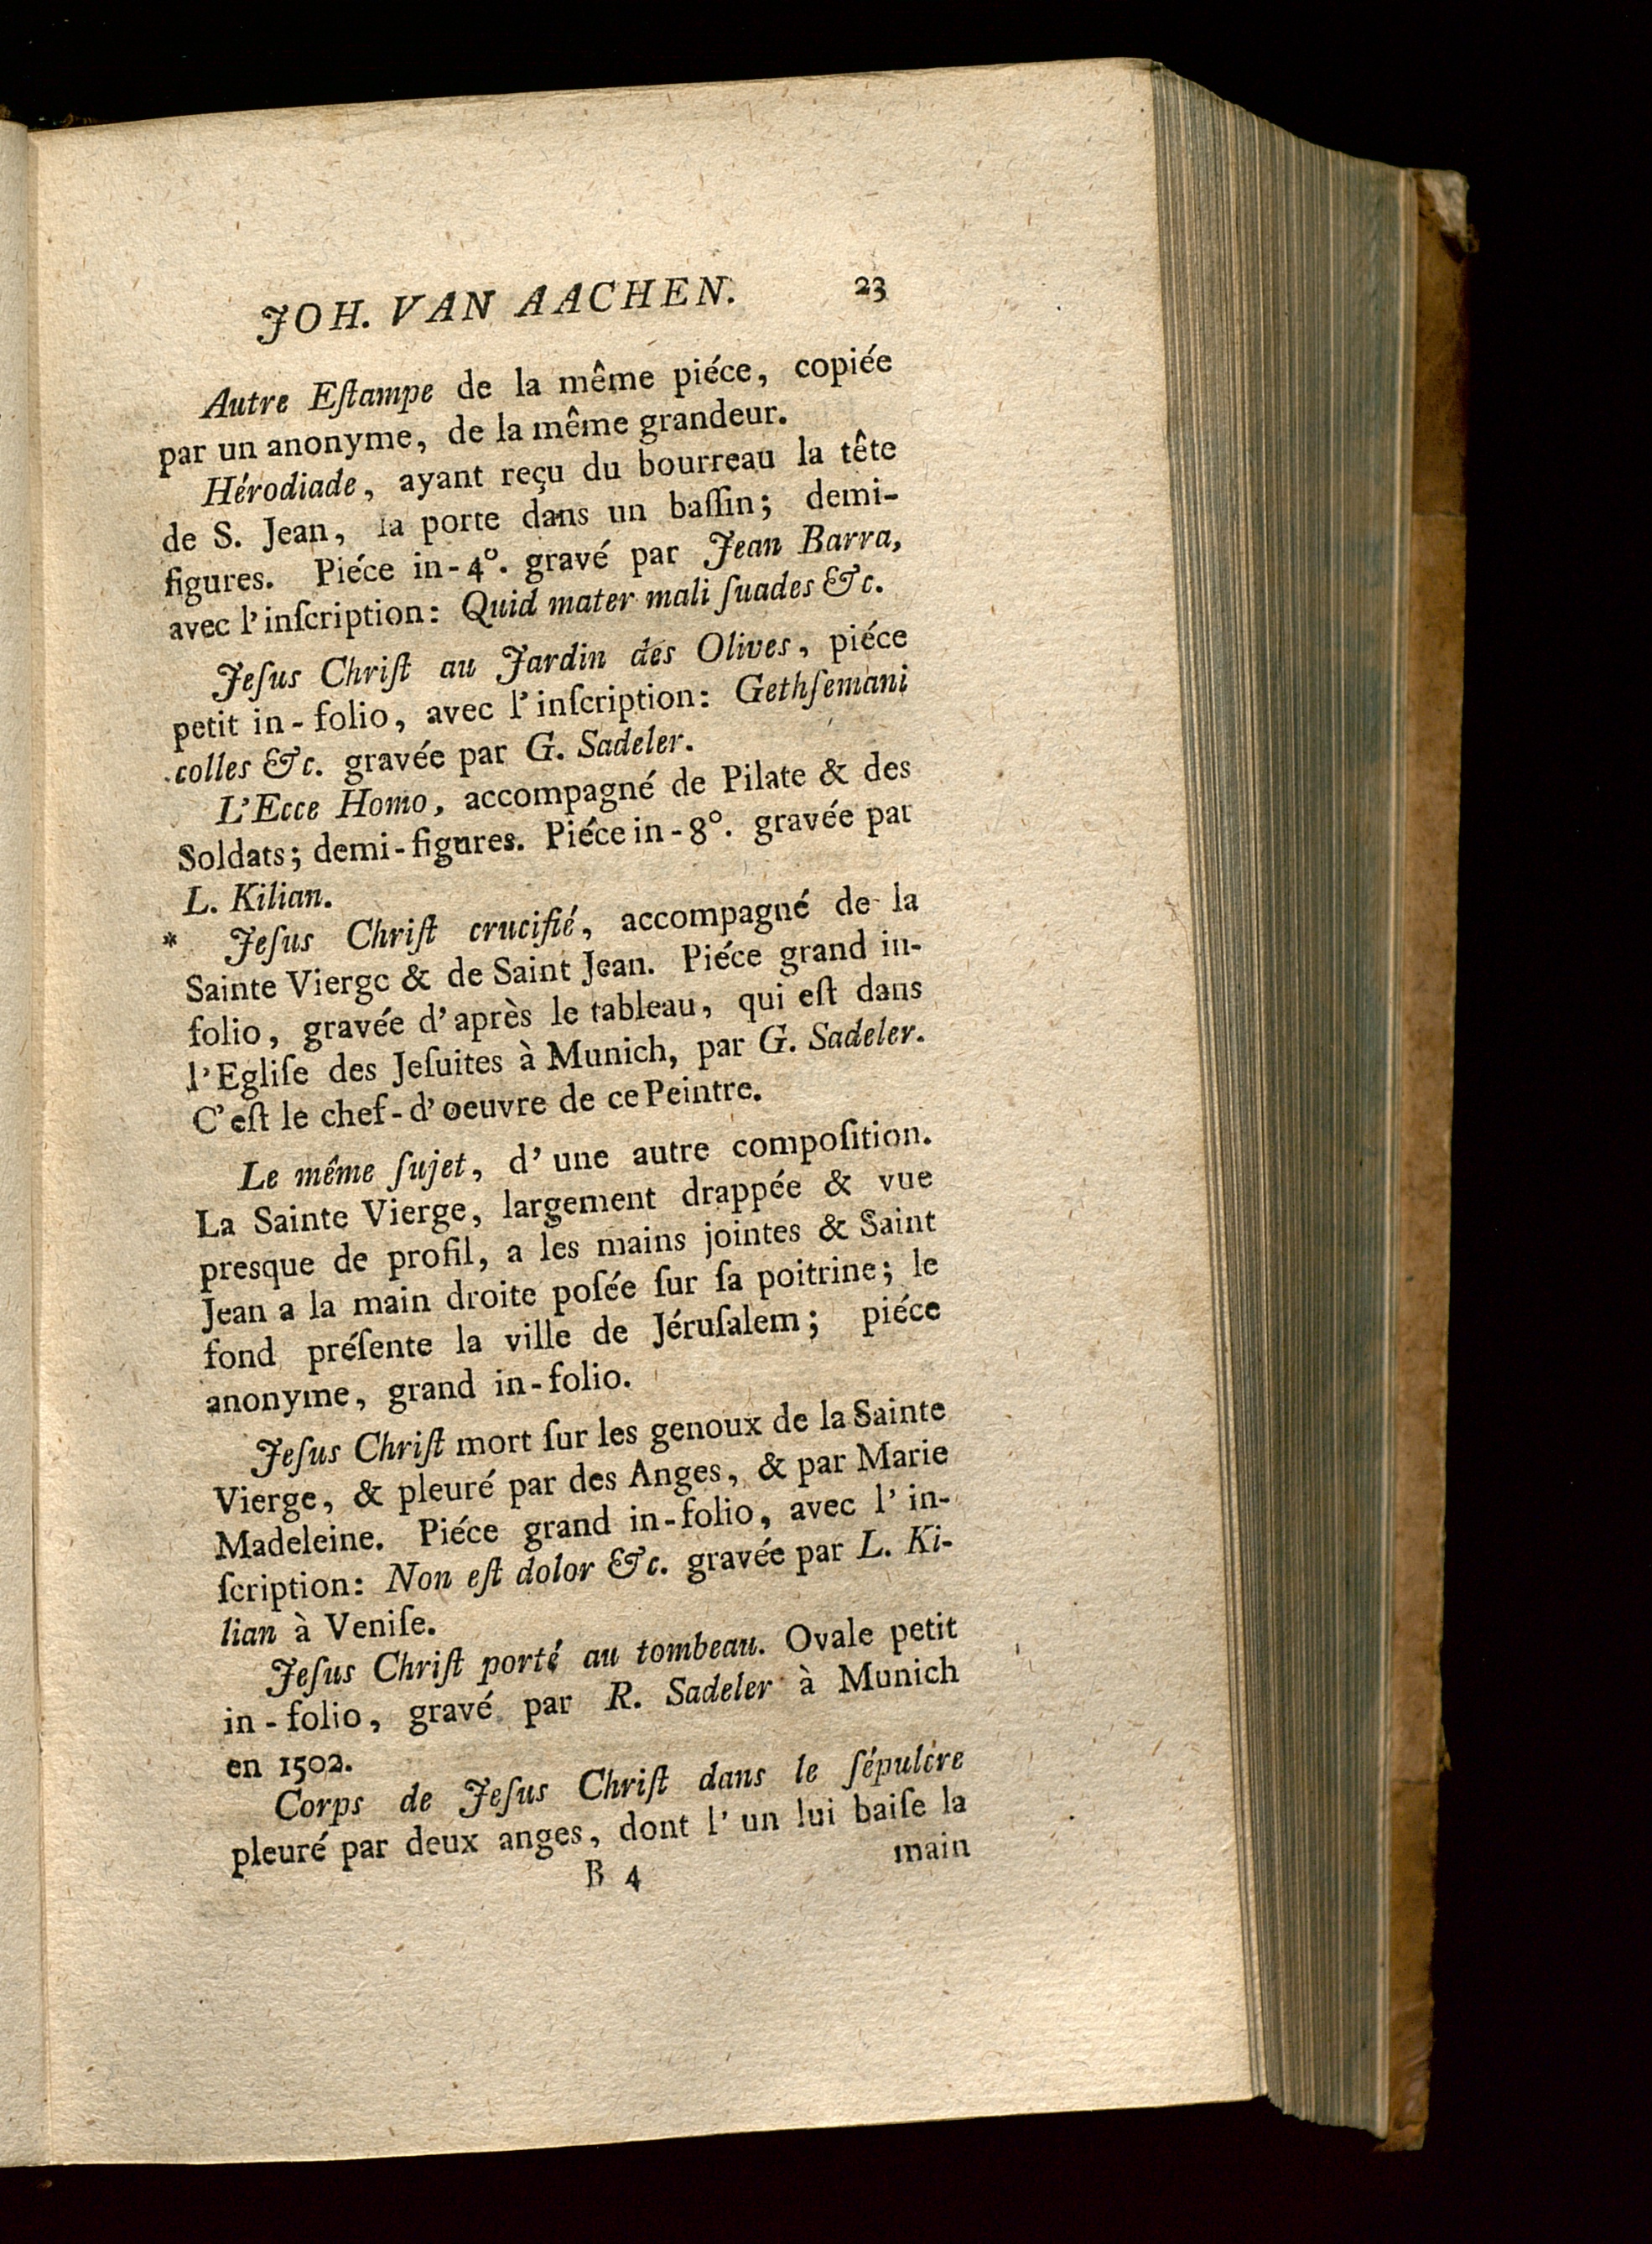 JOH. VAN AACHEN. 23
Autre Eſtampe de la même piéce, copiée
par un anonyme, de la même grandeur.
Hérodiade, ayant reçu du bourreau la tête
de S. Jean, la porte dans un baſſin; demi-
figures. Piéce in-4°. gravé par Jean Barra,
avec l'inſcription: Quid mater mali ſuades &c.
Jeſus Chriſt au Jardin des Olives, piéce
petit in-folio, avec l'inſcription: Gethſemani
colles &c. gravée par G. Sadeler.
L'Ecce Homo, accompagné de Pilate & des
Soldats; demi-figures. Piéce in-8°. gravée par
L. Kilian.
* Jeſus Chriſt crucifié, accompagné de la
Sainte Vierge & de Saint Jean. Piéce grand in-
folio, gravée d'après le tableau, qui eſt dans
l'Egliſe des Jeſuites à Munich, par G. Sadeler.
C'eſt le chef-d'oeuvre de ce Peintre.
Le même ſujet, d'une autre compoſition.
La Sainte Vierge, largement drappée & vue
presque de profil, a les mains jointes & Saint
Jean a la main droite poſée ſur ſa poitrine; le
fond préſente la ville de Jéruſalem; piéce
anonyme, grand in-folio.
Jeſus Chriſt mort ſur les genoux de la Sainte
Vierge, & pleuré par des Anges, & par Marie
Madeleine. Piéce grand in-folio, avec l'in-
ſcription: Non eſt dolor &c. gravée par L. Ki-
lian à Veniſe.
Jeſus Chriſt porté au tombeau. Ovale petit
in-folio, gravé par R. Sadeler à Munich
en 1502.
Corps de Jeſus Chriſt dans le ſépulcre
pleuré par deux anges, dont l'un lui baiſe la
B 4 main